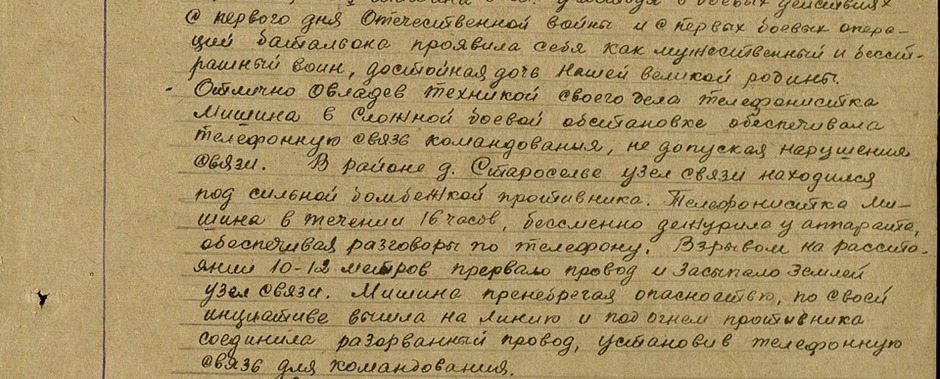 в боевых действиях
с первого дня Отечественной войны и с первых боевых опера-
ций батальона проявила себя как мужественный и бесст-
рашный воин, достойная дочь нашей великой родины.
- Отлично овладев техникой своего дела телефонистка
Мишина в сложной боевой обстановке обеспечивала
телефонную связь командования, не допуская нарушения
связи. В районе д. Староселье узел связи находился
под сильной бомбежкой противника. Телефонистка Ми-
шина в течении 16 часов, бессменно дежурила у аппарата,
обеспечивая разговоры по телефону. Взрывом на рассто-
янии 10-12 метров прервало провод и засыпало землей
узел связи. Мишина пренебрегая опасностью, по своей
инциативе вышла на линию и под огнем противника
соединила разорванный провод, установив телефонную
связь для командования.